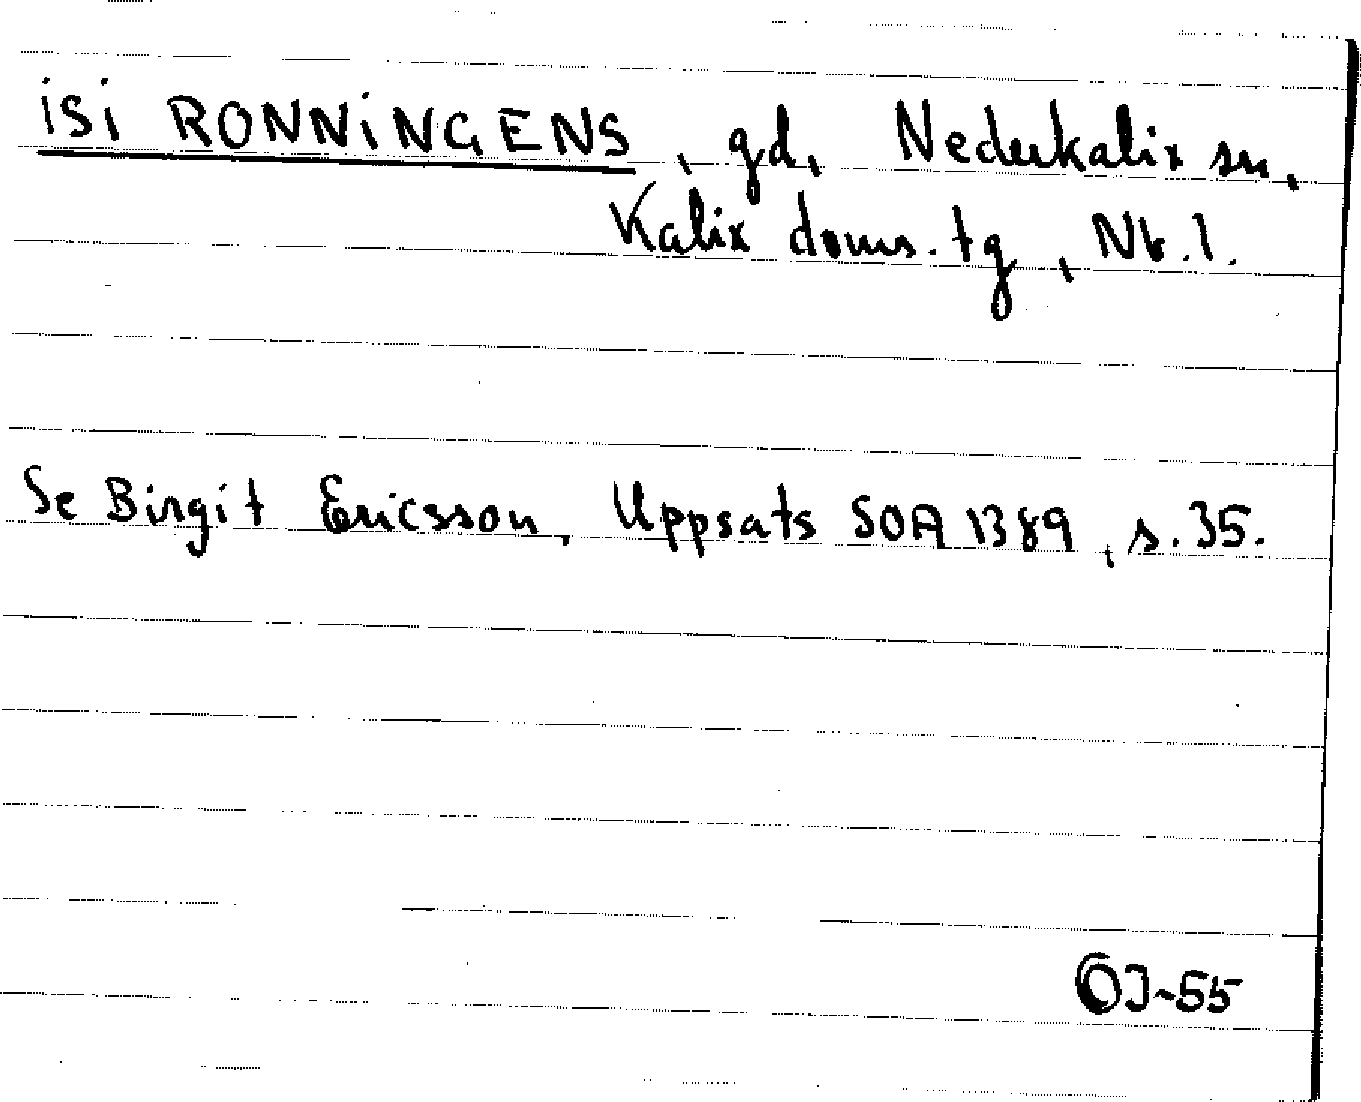 iSi RONNiNGENS, gd, Nederkalix sn,
Kalix doms. tg, Nb. l.
Se Birgit Ericsson, Uppsats SOA 1389, s. 35.
OJ-55